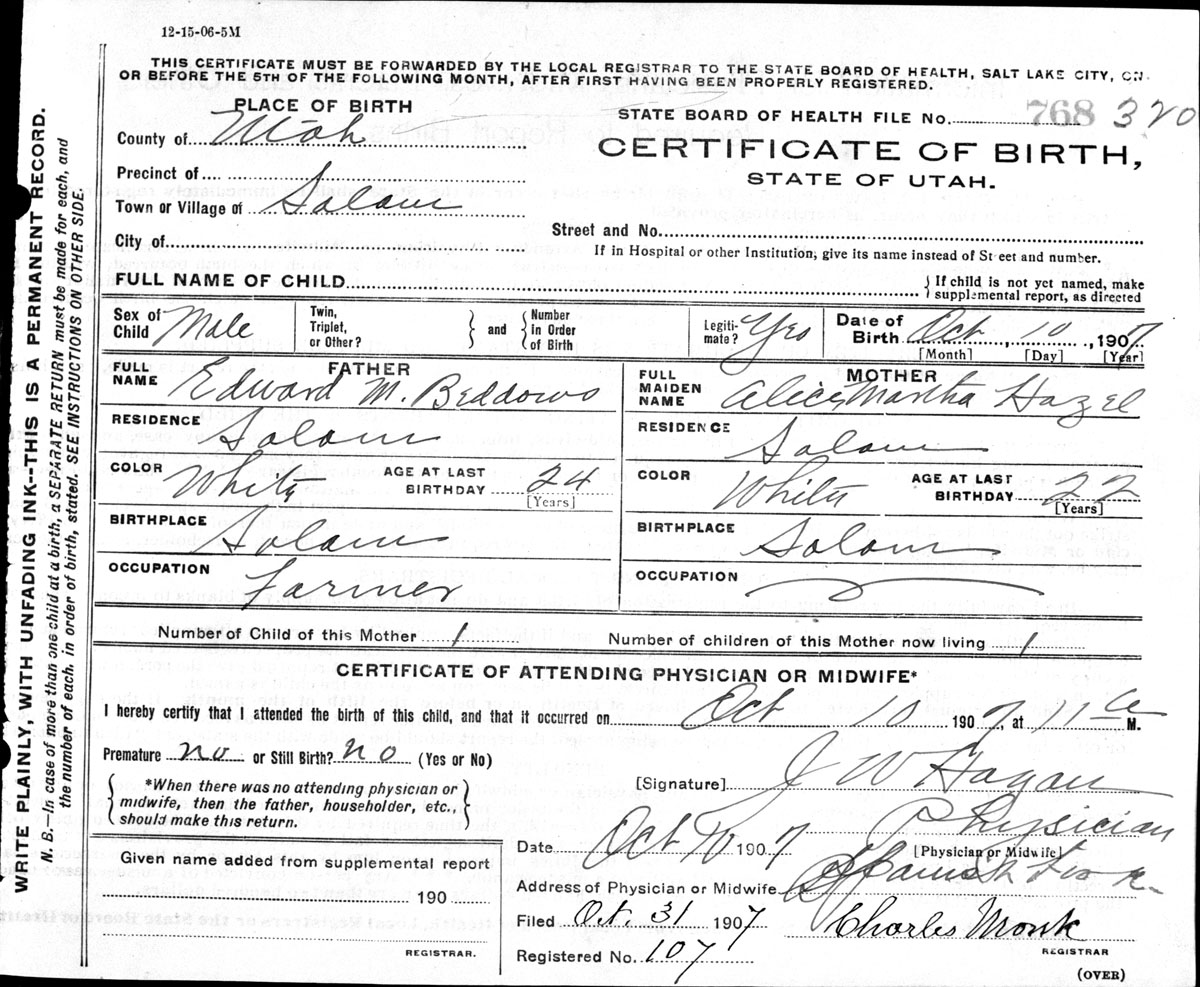 12-15-06-5M
THIS CERTIFICATE MUST BE FORWARDED BY THE LOCAL REGISTRAR TO THE STATE BOARD OF HEALTH, SALT LAKE CITY, ON
OR BEFORE THE 5TH OF THE FOLLOWING MONTH, AFTER FIRST HAVING BEEN PROPERLY REGISTERED.
PLACE OF BIRTH
County of Utah
Precinct of
Town or Village of Salem
City of
STATE BOARD OF HEALTH FILE No. 768 320
CERTIFICATE OF BIRTH,
STATE OF UTAH.
Street and No.
If in Hospital or other Institution, give its name instead of Street and number.
FULL NAME OF CHILD
If child is not yet named, make
supplemental report, as directed
Sex of Child Male
Twin, Triplet, or Other?
and
Number in Order of Birth
Legiti-mate? Yes
Date of Birth Oct 10, 1907
[Month] [Day] [Year]
FATHER
FULL NAME Edward M. Beddows
RESIDENCE Salem
COLOR White AGE AT LAST BIRTHDAY 24
[Years]
BIRTHPLACE Salem
OCCUPATION Farmer
MOTHER
FULL MAIDEN NAME Alice Martha Hazel
RESIDENCE Salem
COLOR White AGE AT LAST BIRTHDAY 22
[Years]
BIRTHPLACE Salem
OCCUPATION
Number of Child of this Mother 1 Number of children of this Mother now living 1
CERTIFICATE OF ATTENDING PHYSICIAN OR MIDWIFE*
I hereby certify that I attended the birth of this child, and that it occurred on Oct 10 1907, at 11 a M.
Premature no or Still Birth? no (Yes or No)
*When there was no attending physician or
midwife, then the father, householder, etc.,
should make this return.
[Signature] J W Hagan
Physician
[Physician or Midwife]
Date Oct 10 1907
Address of Physician or Midwife Spanish Fork
Filed Oct. 31 1907 Charles Monk
REGISTRAR
Registered No. 107
(OVER)
Given name added from supplemental report
190
REGISTRAR.
WRITE PLAINLY, WITH UNFADING INK--THIS IS A PERMANENT RECORD.
N. B.—In case of more than one child at a birth, a SEPARATE RETURN must be made for each, and
the number of each, in order of birth, stated. SEE INSTRUCTIONS ON OTHER SIDE.